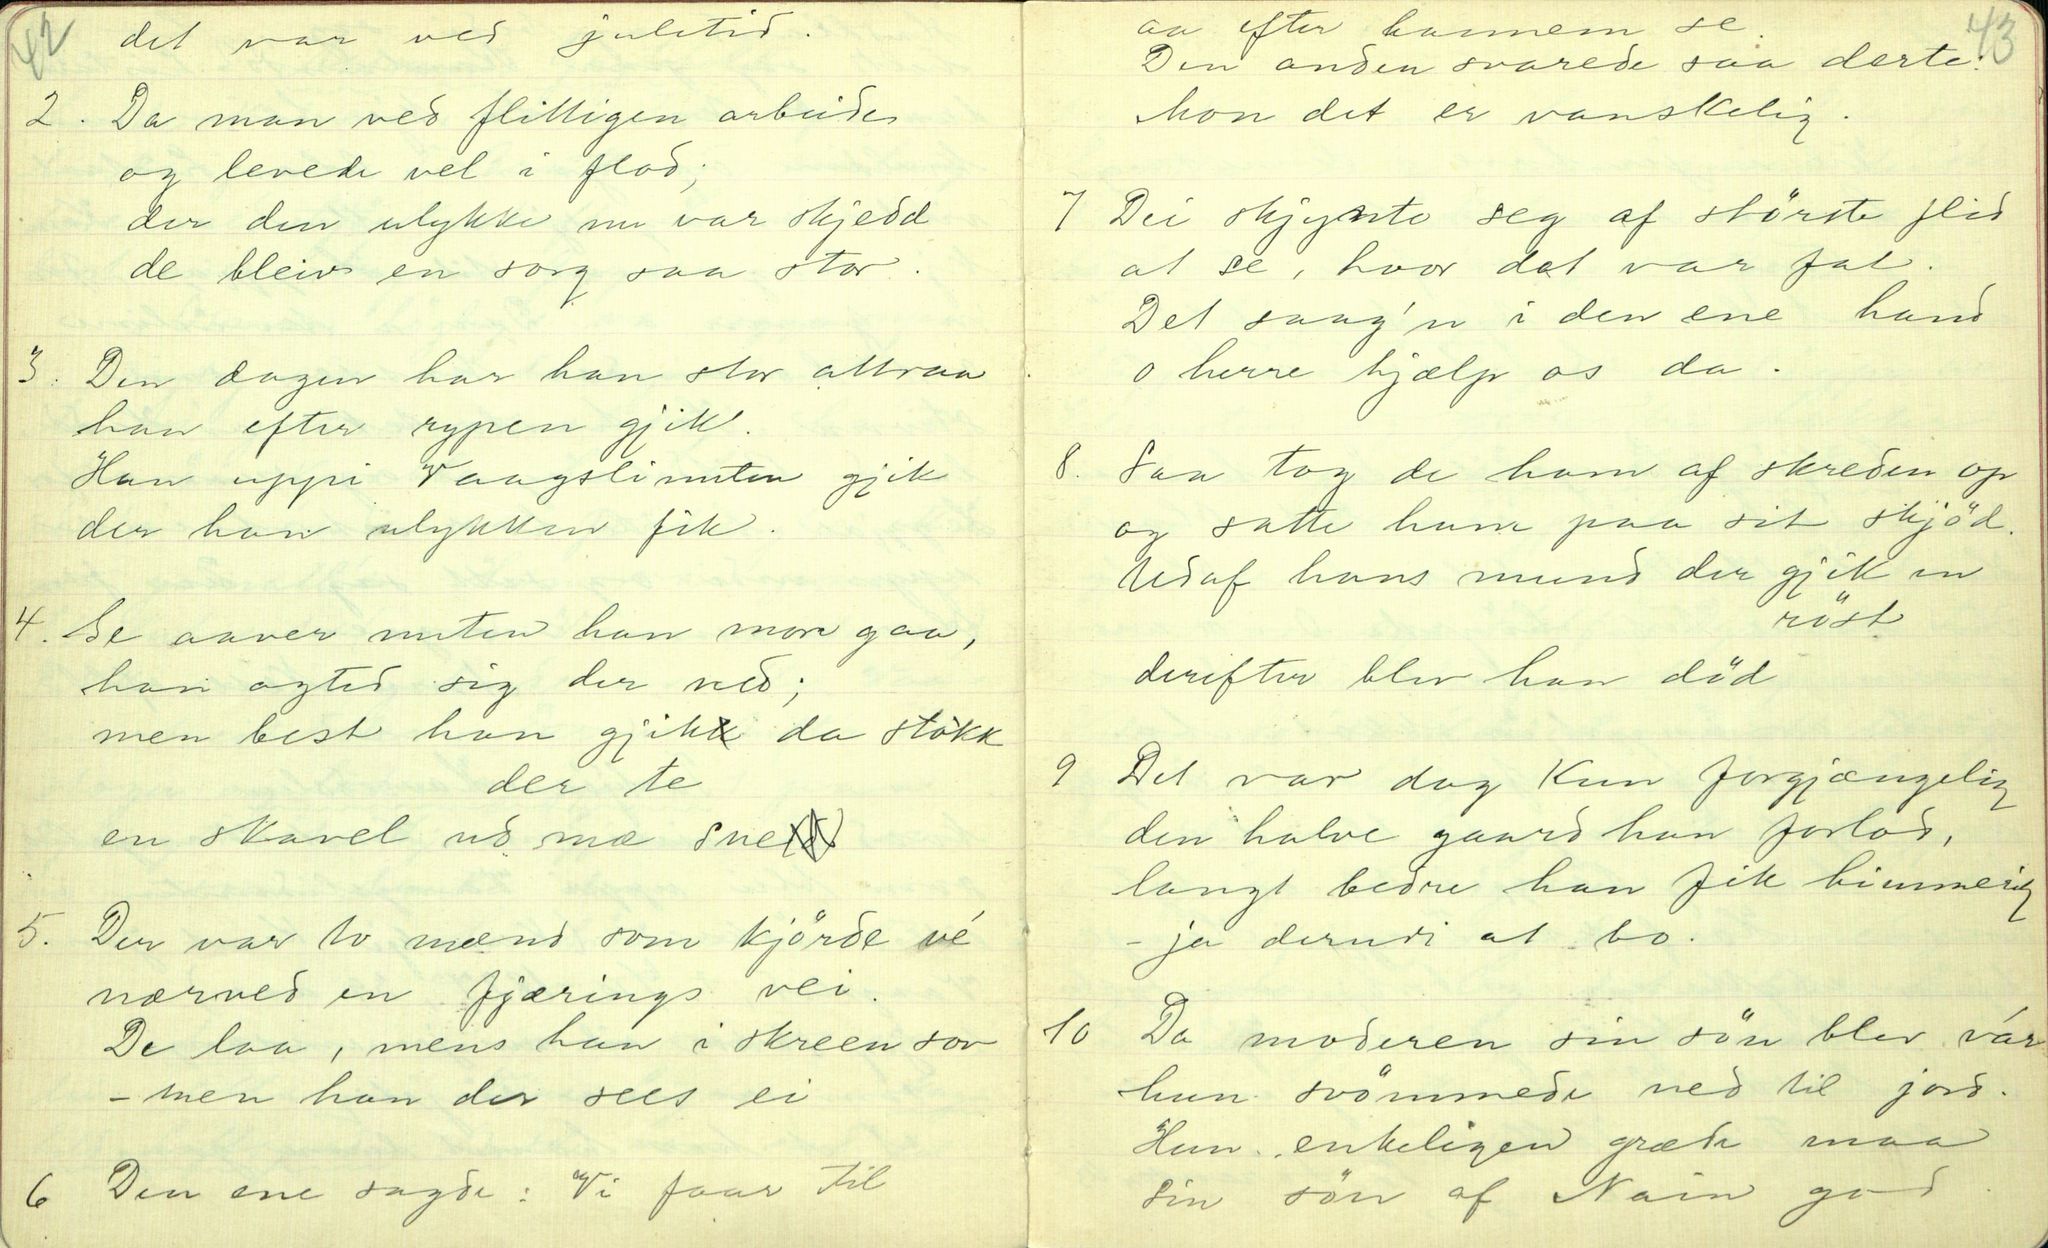 42
det var ved juletid.
2. Da man ved flittigen arbeide
og levede vel i flod;
der den ulykke nu var skjedd
de bleiv en sorg saa stor.
3. Den dagen har han stor attraa
han efter rypen gjik.
Han uppi Vaagslinuten gjik
der han ulykken fik.
4. Se aaver nuten han mon gaa,
han agted sig der ned;
men best han gjikk da stökk
der te
en skavel ud mæ sne
5. Der var to mænd som kjörde vé
nærved en fjærings vei.
De laa, mens han i skreen sov
- men han der sees ei
6 Den ene sagde: Vi faar til
43
aa efter hannem se.
Den anden svarede saa derte:
mon det er vanskelig.
7 Dei skjynte seg af störste flid
at se, hvor det var fat.
Det saag'n i den ene hand
o herre hjælp os da.
8. Saa tog de ham af skreden op
og satte ham paa sit skjöd.
Udaf hans mund der gjik en
röst
derefter blev han död
9 Det var dog kun forgjængelig
den halve gaard han forlod,
langt bedre han fik himmerig
- ja derudi at bo.
10 Da moderen sin sön blev vár
hun svömmede ned til jord.
Hun enkeligen græde maa
sin sön af Nain god